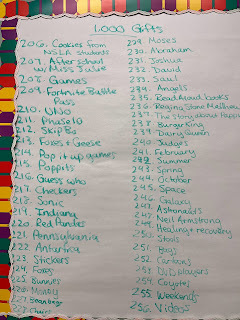 1,000 Gifts
206. Cookies from NSLA students
207. After school w/ Miss Julie
208. Games
209. Fortnite Battle Pass
210. UNO
211. Phase 10
212. Skip Bo
213. Foxes & Geese
214. Pop it up games
215. Poppits
216. Guess who
217. Checkers
218. Sonic
219. Indiana
220. Red Pandas
221. Pennsylvania
222. Antartica
223. Stickers
224. Foxes
225. Bunnies
226.
227. Beanbags
228. Chairs
229. Moses
230. Abraham
231. Joshua
232. David
233. Saul
234. Angels
235. Read Aloud books
236. Regina Stone Matthews
237. The Story about Happy
238. Burger King
239. Dairy Queen
240. Judges
241. February
242. Summer
243. Spring
244. October
245. Space
246. Galaxy
247. Astronauts
248. Neil Armstrong
249. Healing + recovery
250. Stools
251. Hugs
252. Cartoons
253. DVD players
254. Coyotes
255. Weekends
256. Videos